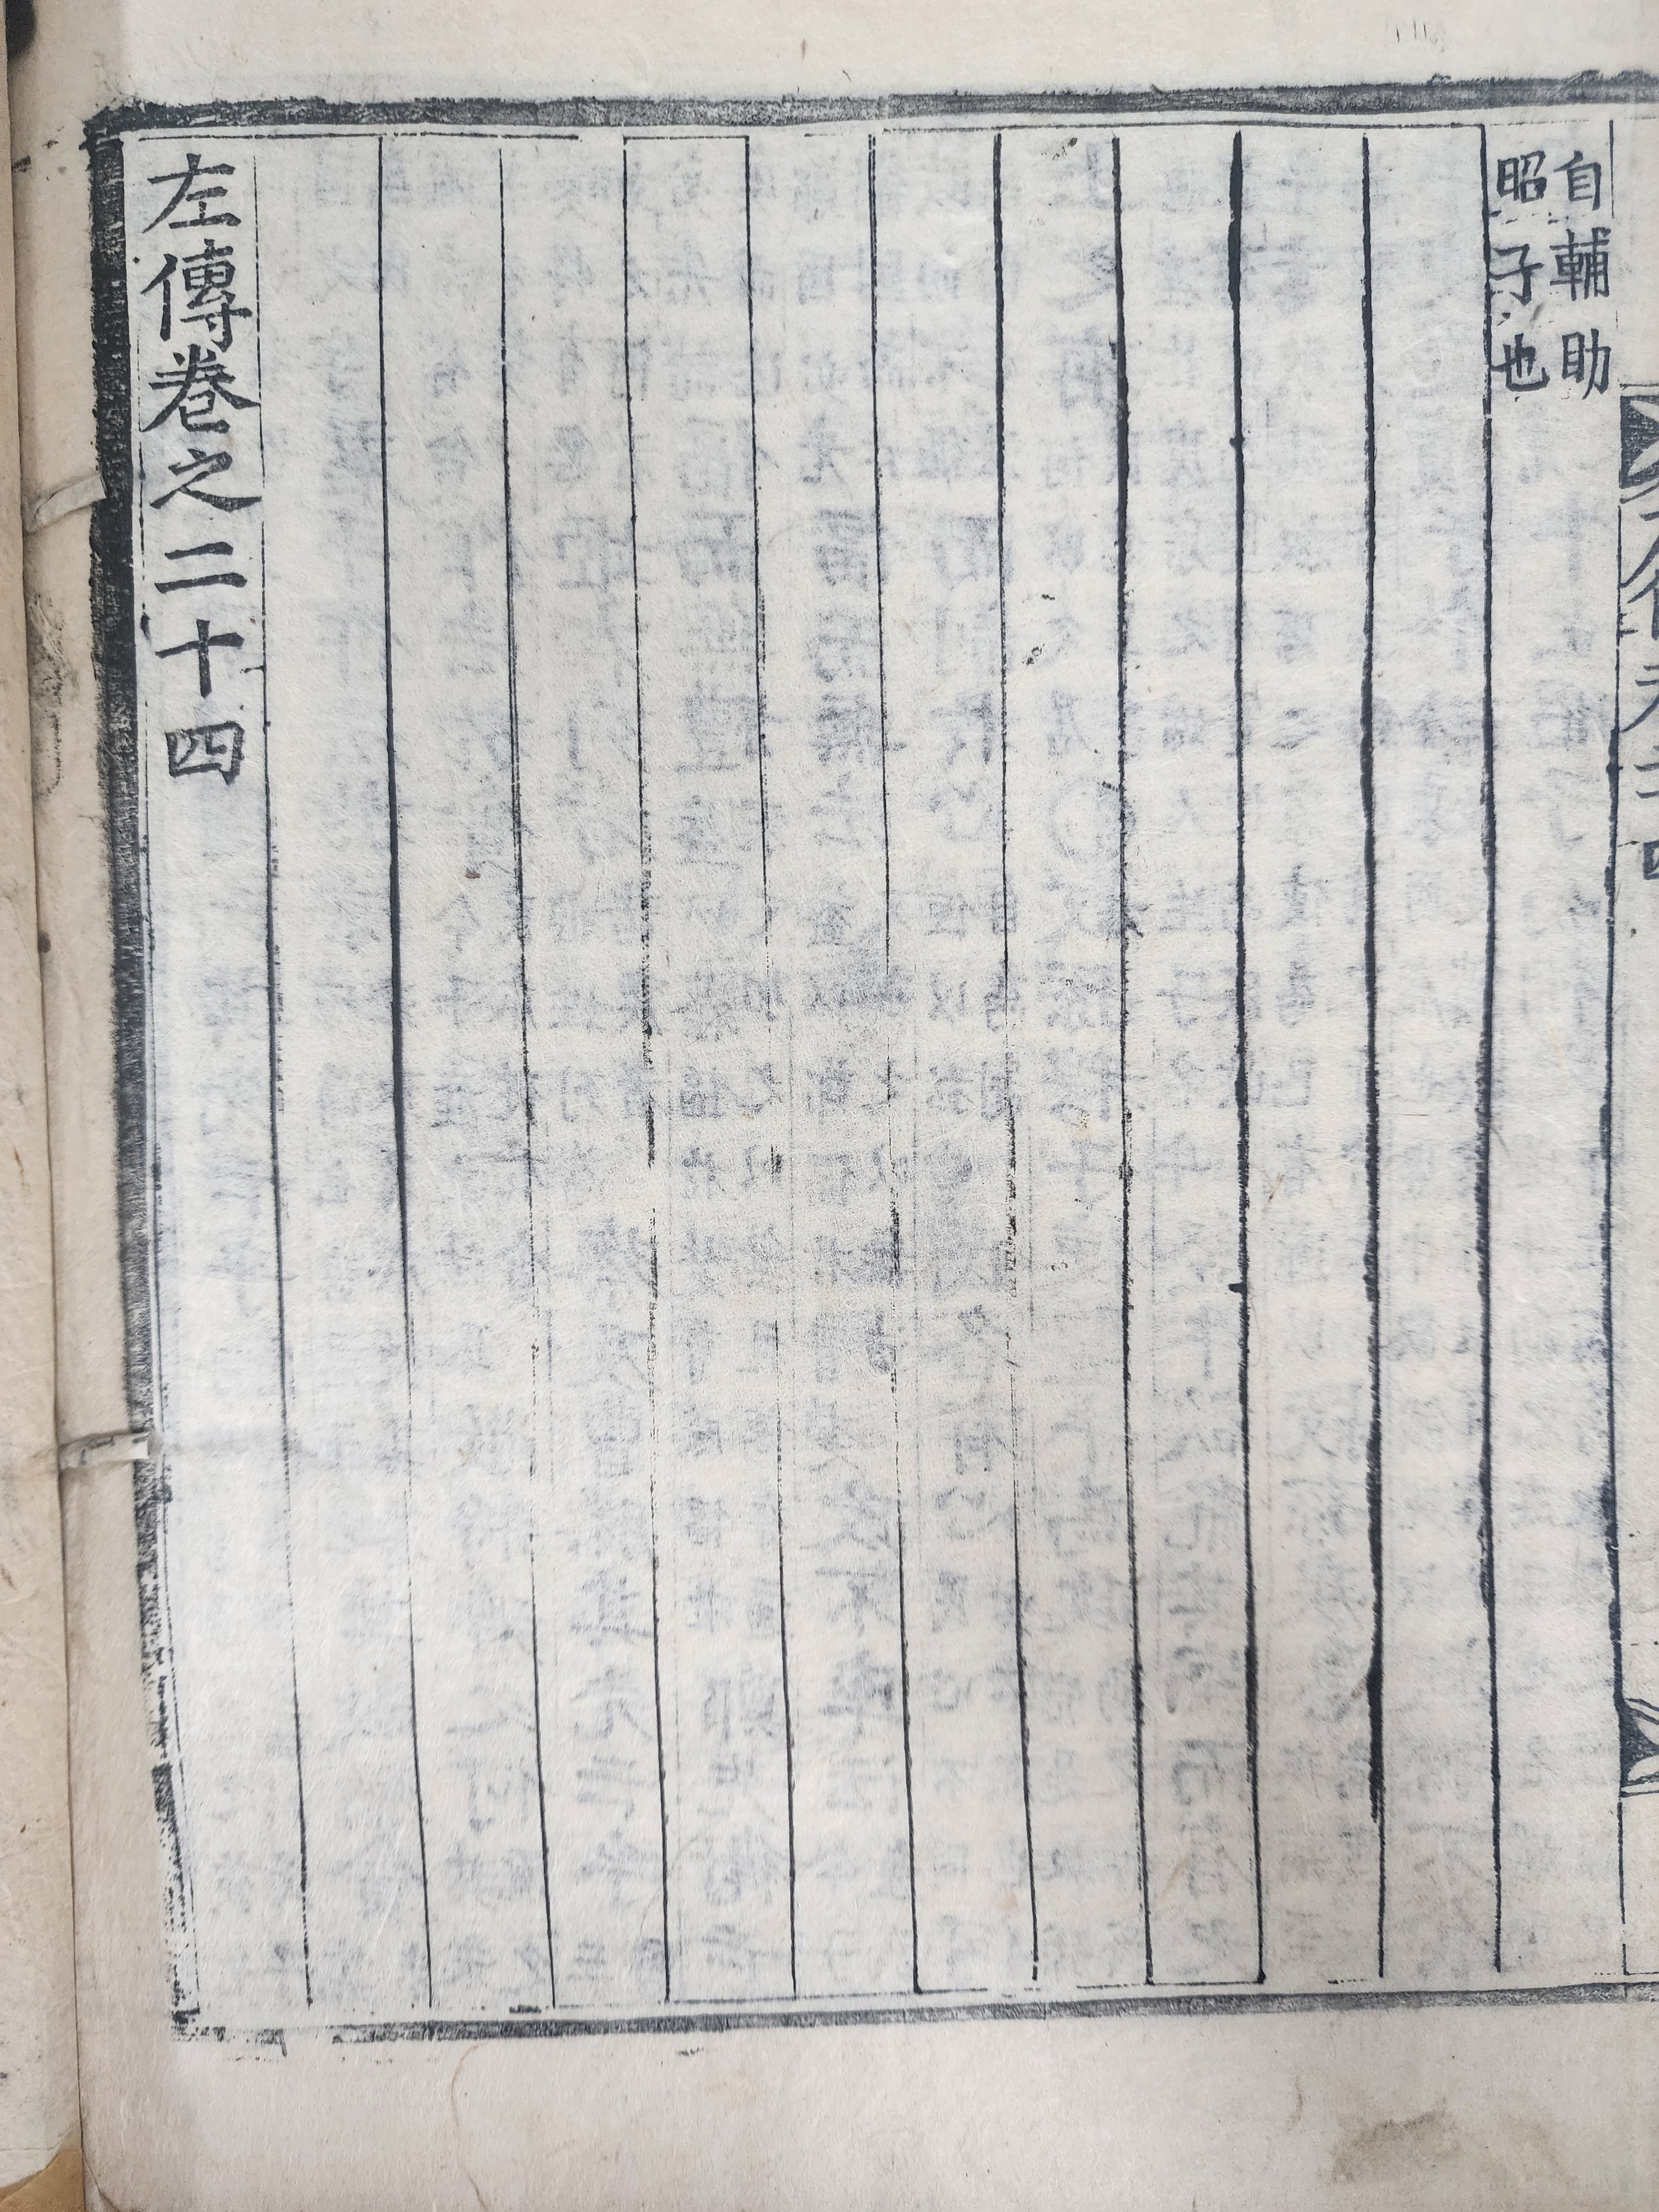 自輔助
昭子也
左傳卷之二十四